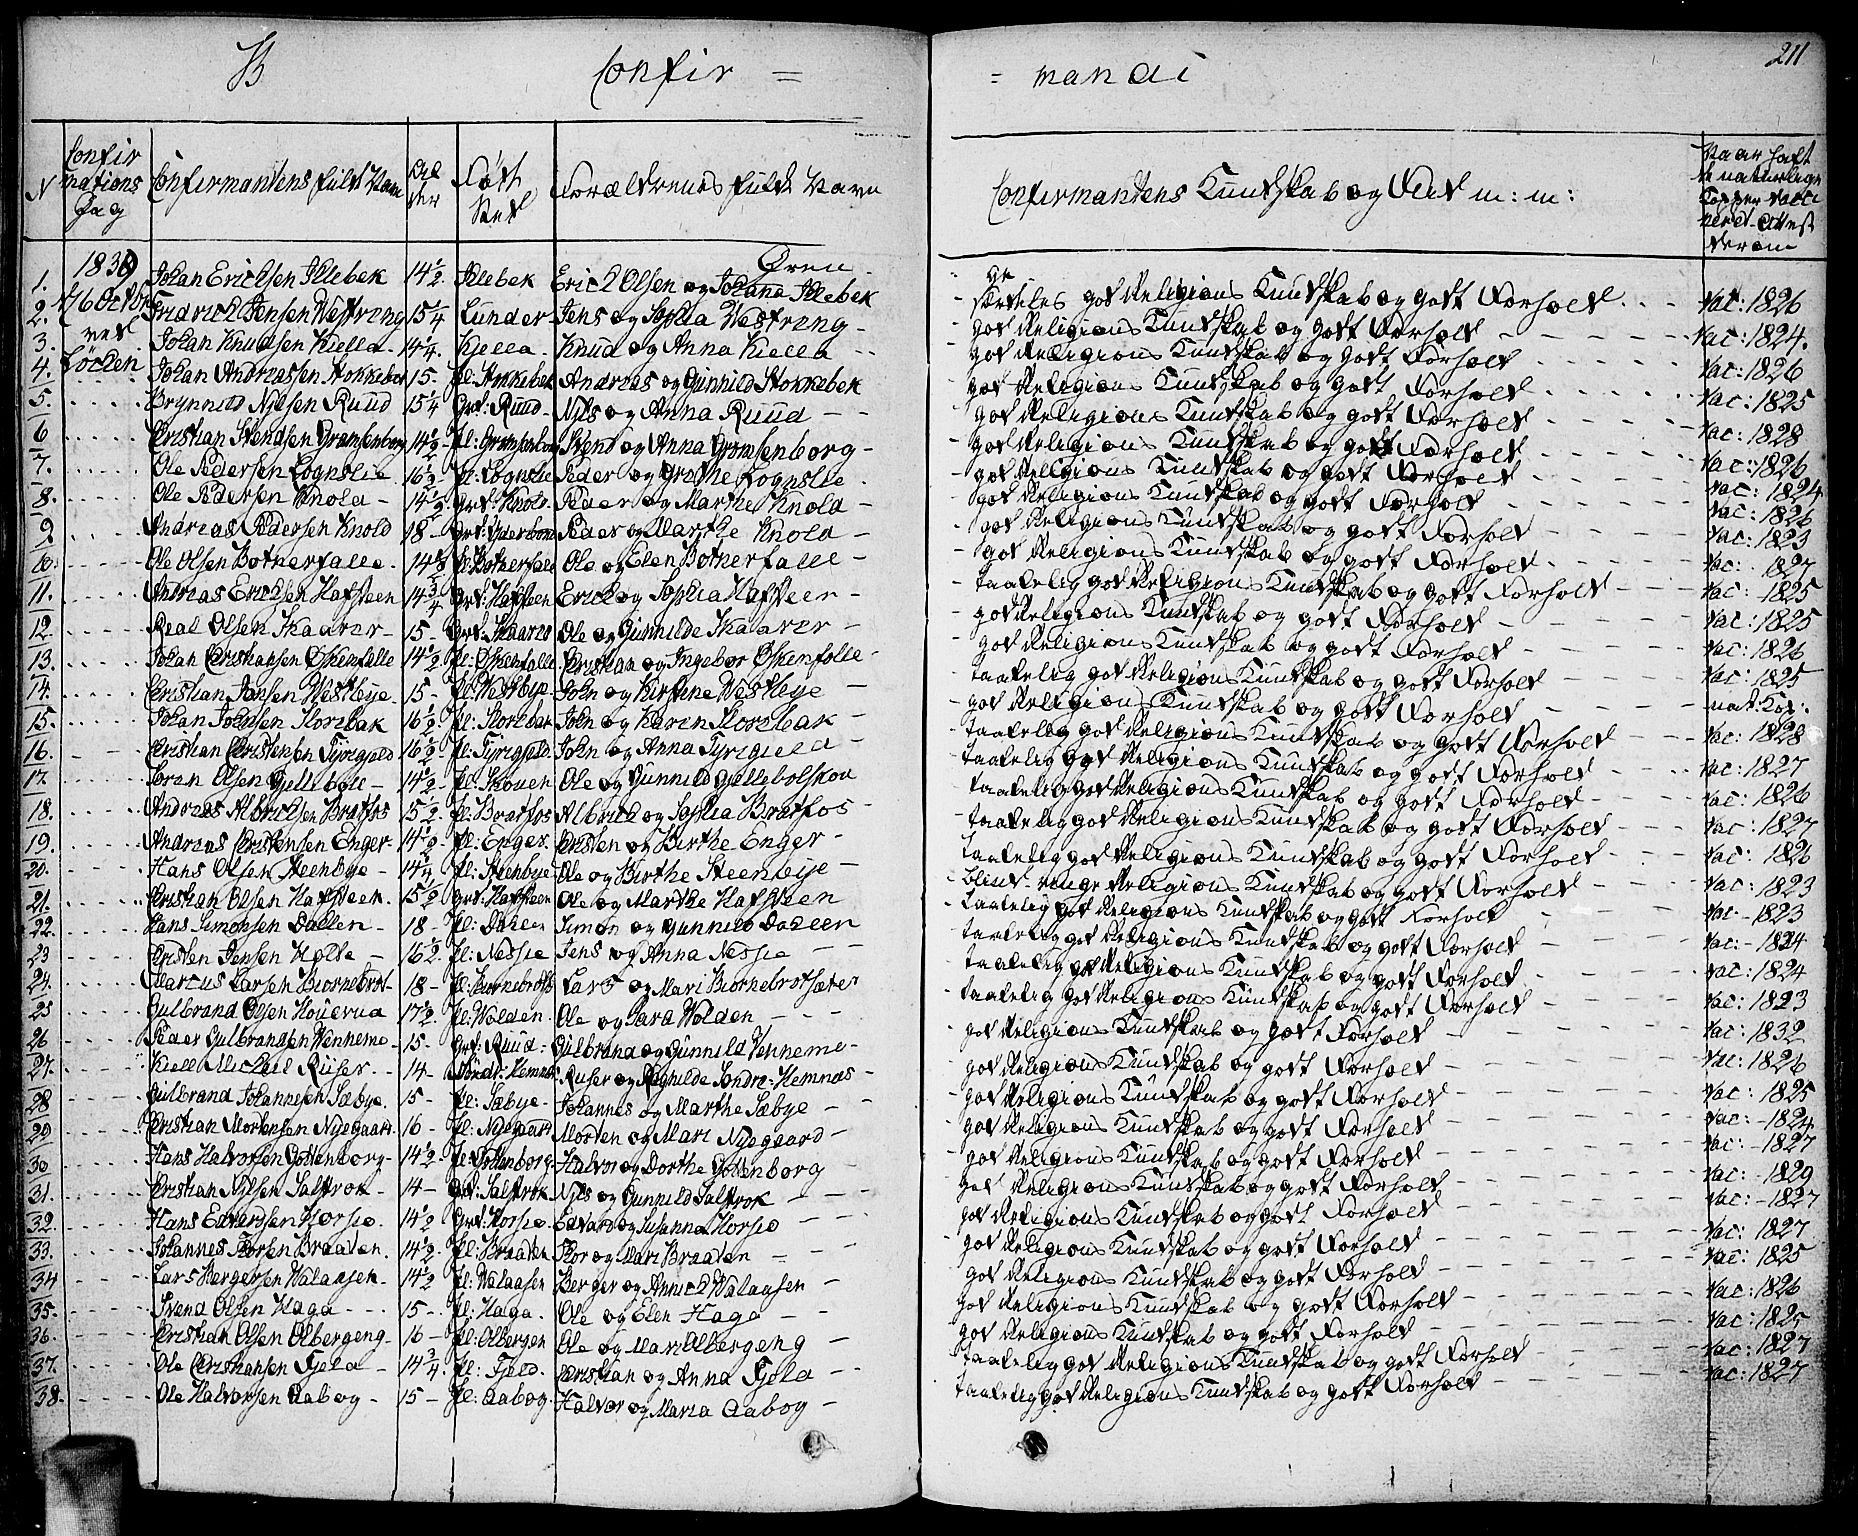 B Confir = = mandi 211
N Confir mations Dag Confirmantens fulde Navn Al der Født Sted Forældrenes fulde Navn Confirmantens Kundskab og Flid m: m: Naar haft de naturlige Kopper Vacci neret
1839
Øren
1. Johan Erichsen Illebek 14½ Illebek Erich Olsen og Johana Illebek særdeles god Religions Kundskab og godt Forhold Vac: 1826
2. Fridrich Jensen Westreng 15¼ Lunder Jens og Sophia Westreng god Religions Kundskab og godt Forhold Vac: 1824.
3. Johan Knudsen Kiella 14¼ Kjella Knud og Anna Kiella god Religions Kundskab og godt Forhold Vac: 1826
4. Johan Andreassen Stokkebek 15 Pl: Stokkebek Andreas og Gunnild Stokkebek god Religions Kundskab og godt Forhold Vac: 1825
5. Brynnild Nilsen Ruud 15¼ Grd: Ruud Nils og Anna Ruud god Religions Kundskab og godt Forhold Vac: 1828
6 Cristian Svendsen Gramsenborg 14½ Pl: Gramsenborg Svend og Anna Gramsenborg god Religions Kundskab og godt Forhold Vac: 1826
7. Ole Pedersen Lognslie 16½ Pl: Lognslie Peder og Grethe Lognslie god Religions Kundskab og godt Forhold Vac: 1824
8. Ole Pedersen Knold 14½ Grd: Knold Peder og Marthe Knold god Religions Kundskab og godt Forhold Vac: 1826
9 Andreas Pedersen Knold 18 Peder og Marthe Knold god Religions Kundskab og godt Forhold Vac: 1823
10. Ole Olsen Botnerfalle Pl: Botnerfalle Ole og Elen Botnerfalle god Religions Kundskab og godt Forhold Vac: 1827
11. Andreas Erichsen Hafsteen 14¾ Grd: Hafsteen Erich og Sophia Hafsteen taalelig god Religions Kundskab og godt Forhold Vac: 1825
12 Peal Olsen Skaarer 15 Grd: Skaarer Ole og Gunnilde Skaarer god Religions Kundskab og godt Forhold Vac: 1825
13. Johan Cristiansen Øskenfalle 14½ Pl: Øskenfalle Cristian og Ingebor Øskenfalle god Religions Kundskab og godt Forhold Vac: 1826
14. Cristian Jonsen Westbye 15 Pl: Westbye John og Kirstine Westbye taalelig god Religions Kundskab og godt Forhold Vac: 1825
15. Johan Johnsen Storebak 16½ Pl: Storebak John og Karen Storebak god Religions Kundskab og godt Forhold nat: Kop:
16. Cristian Cristensen Tyrigjeld 16½ Pl: Tyrigjeld John og Anna Tyrigield taalelig god Religions Kundskab og godt Forhold Vac: 1828
17. Søren Olsen Gjellebøll 14½ Pl: Skouen Ole og Gunnild Gjellebølskou taalelig god Religions Kundskab og godt Forhold Vac: 1827
18. Andreas Albrichsen Bratfos 15½ Pl: Bratfos Albrich og Sophia Bratfos taalelig god Religions Kundskab og godt Forhold Vac: 1826
19. Andreas Cristensen Enger 14½ Pl: Enger Cristen og Birthe Enger taalelig god Religions Kundskab og godt Forhold Vac: 1827
20. Hans Olsen Steenbye 14¼ Pl: Steenbye Ole og Birthe Steenbye taalelig god Religions Kundskab og godt Forhold Vac: 1826
21. Cristian Olsen Hafsteen 15½ Grd: Hafsteen Ole og Marthe Hafsteen Religions Kundskab og godt Forhold Vac: 1823
22. Hans Simonsen Dallen 18 Simon og Gunnild taalelig god Religions Kundskab og godt Forhold Vac 1823
23 Cristen Jensen Holte 16½ Pl: Nessie Jens og Anna Nessie taalelig god Religions Kundskab og godt Forhold Vac: 1824
24. Marcus Larsen Biornebrot 18 Lars og Mari Biornebrotsæter taalelig god Religions Kundskab og godt Forhold Vac: 1824
25 Gulbrand Olsen 17½ Pl: Wolden Ole og Sara Wolden taalelig god Religions Kundskab og godt Forhold Vac: 1823
26 Peder Gulbrandsen Wennemo 15 Grd: Ruud Gulbrand og Gunnild Wennemo god Religions Kundskab og godt Forhold Vac: 1832
27. Kield Michael Ruser 14 Søndr: Hemnæs Ruser og Ragnilde Søndre Hemnæs god Religions Kundskab og godt Forhold Vac: 1826
28 Gulbrand Johannesen Sæbye 15 Pl: Sæbye Johannes og Marthe Sæbye god Religions Kundskab og godt Forhold Vac: 1825
29 Cristian Mortensen Nyegaard 16 Pl: Nyegaard Morten og Mari Nyegaard god Religions Kundskab og godt Forhold Vac: 1824
30 Hans Halvorsen Gottenborg 14½ Pl: Gottenborg Halvor og Dorthe Gottenborg god Religions Kundskab og godt Forhold Vac: 1827
31. Cristian Nilsen Saltrok 14 Grd: Saltrok Nils og Gunnild Saltrok god Religions Kundskab og godt Forhold Vac: 1829
32. Hans Edvardsen Horsie 14½ Grd: Horsie Edvard og Susanna Horsie god Religions Kundskab og godt Forhold Vac: 1827
33. Johannes Torsen Braaten 14½ Pl: Braaten Tor og Mari Braaten god Religions Kundskab og godt Forhold Vac: 1827
34 Lars Bergersen Walaasen 14½ Pl: Walaasen Berger og Annich Walaasen god Religions Kundskab og godt Forhold Vac: 1825
35. Svend Olsen Haga 15 Pl: Haga Ole og Elen Haga god Religions Kundskab og godt Forhold Vac: 1826
36. Cristian Olsen Olbergeng 16 Pl: Olbergen Ole og Mari Olbergeng god Religions Kundskab og godt Forhold Vac: 1825
37. Ole Cristiansen Fjeld 14¾ Pl: Fjeld Cristian og Anna Fjeld taalelig god Religions Kundskab og godt Forhold Vac: 1827
38. Ole Halvorsen Aabog 15 Pl: Aabog Halvor og Maria Aabog taalelig god Religions Kundskab og godt Forhold Vac: 1827